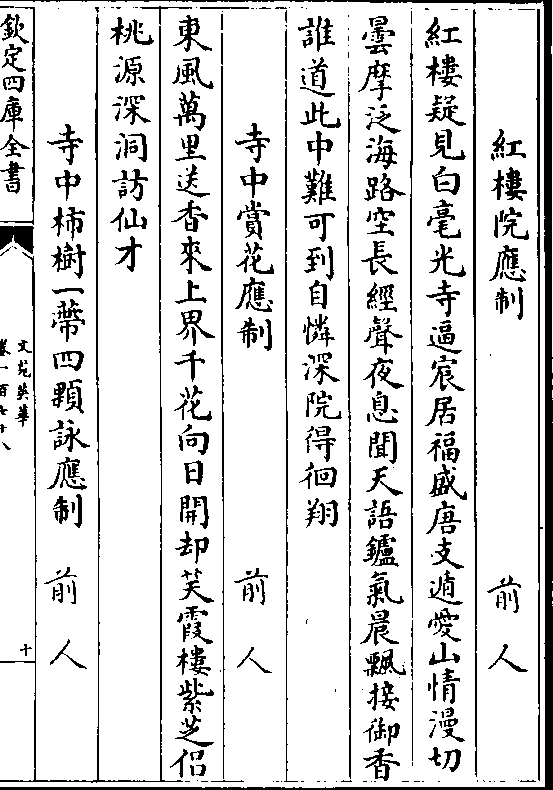 紅樓院應制　前人
紅樓疑見白毫光寺逼宸居福盛唐支遁愛山情漫切
曇摩泛海路空長經聲夜息聞天語鑪氣晨飄接御香
誰道此中難可到自憐深院得徊翔
寺中賞花應制　前人
東風萬里送香來上界千花向日開却笑霞樓紫芝侣
桃源深洞訪仙才
寺中柿樹一蔕四顆詠應制　前人
欽定四庫全書
文苑英華
卷一百七十八
十